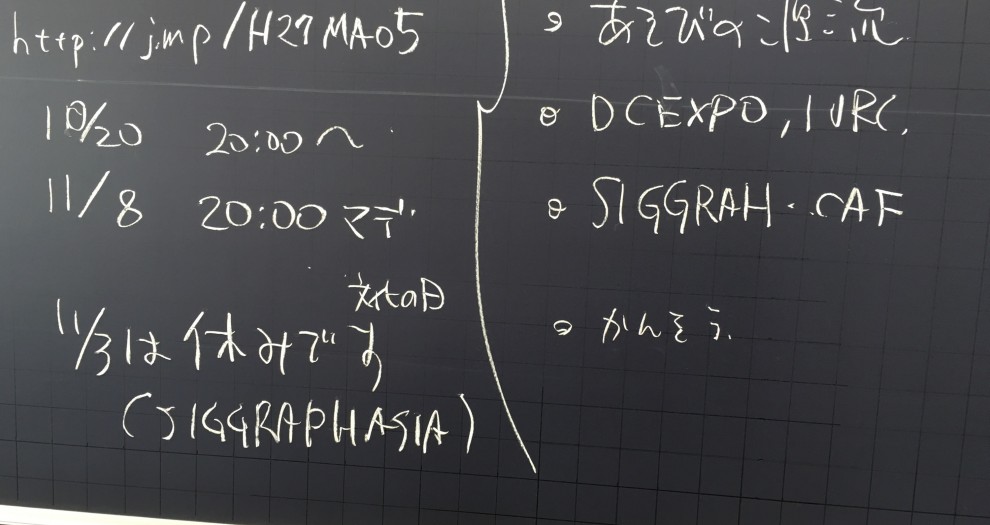 http://j.mp/H27MA05
10/20 20:00〜
11/8 20:00マデ
文化の日
11/3は休みです
(SIGGRAPHASIA)
• あそびの源流
• DCEXPO, IVRC,
• SIGGRAH・CAF
• かんそう